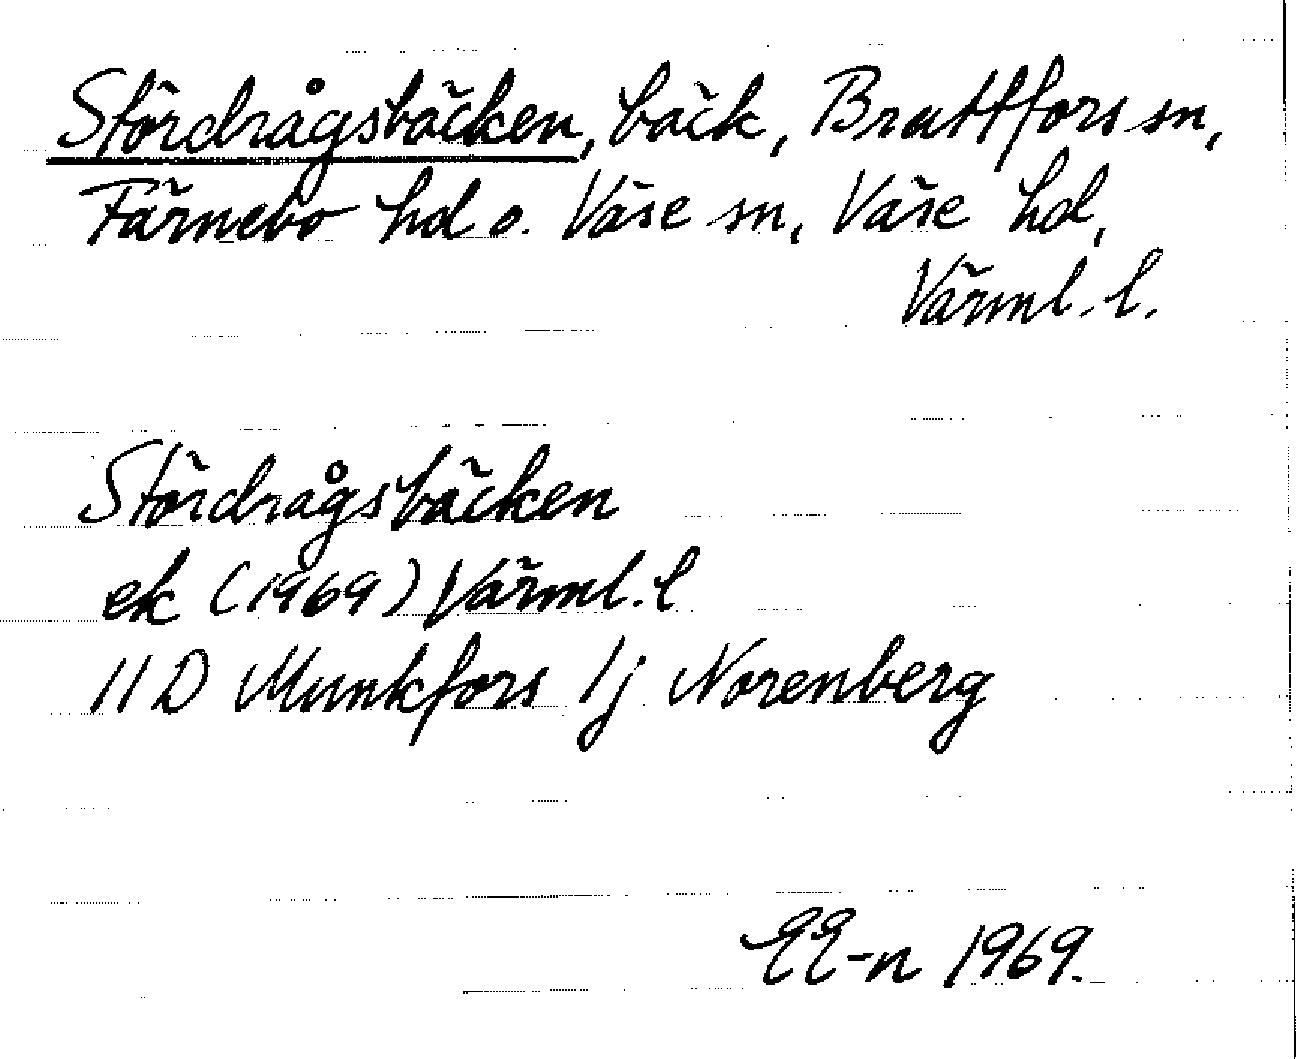 Stördrågsbäcken, bäck, Brattfors sn,
Färnebo hd o. Väse sn, Väse hd,
Värml. l.
Stördrågsbäcken
ek (1969) Värml. l
11 D Munkfors 1j Norenberg
EE-n 1969.